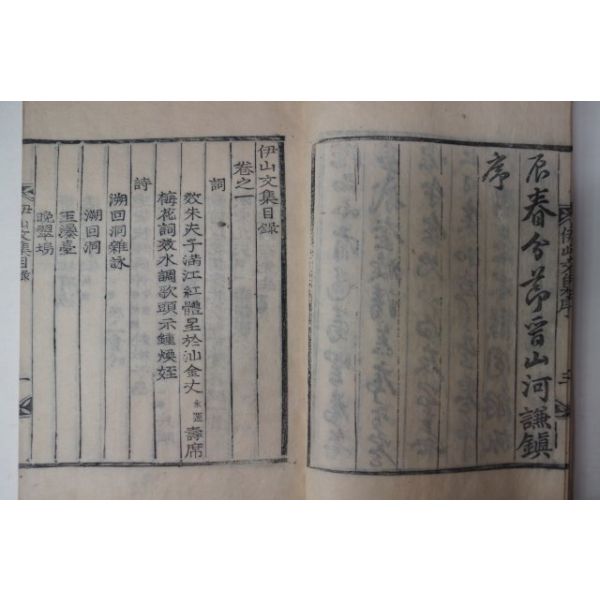 辰春分節晉山河謙鎭
序
伊山文集序
伊山文集目錄
卷之一
詞
效朱夫子滿江紅體呈於汕金丈 壽席
梅花詞效水調歌頭示鍾煥姪
詩
溯回洞雜詠
溯回洞
玉瀑臺
晩翠塢
伊山文集目錄
一